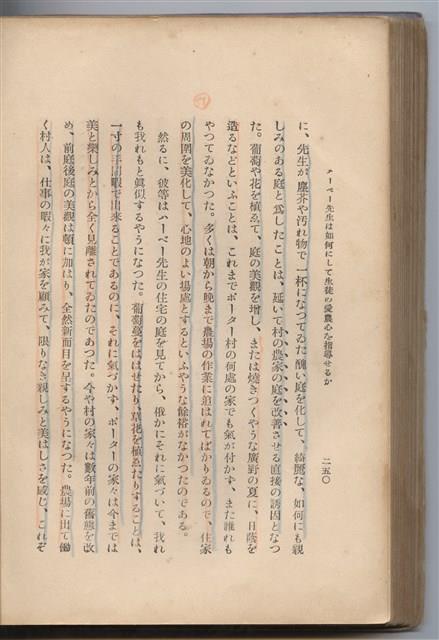 ハーベー先生は如何にして生徒の愛農心を指導せるか
二五〇
に、先生が塵芥や汚れ物で一杯になつてゐた醜い庭を化して、綺麗な、如何にも親
しみのある庭と爲したことは、延いて村の農家の庭を改善させる直接の誘因となつ
た。葡萄や花を植ゑて、庭の美觀を增し、または燒きつくやうな廣野の夏に、日蔭を
造るなどといふことは、これまでポーター村の何處の家でも氣が付かず、また誰れも
やつてゐなかつた。多くは朝から晩まで農場の作業に追はれてばかりゐるので、住家
の周圍を美化して、心地のよい場處とするといふやうな餘裕がなかつたのである。
然るに、彼等はハーベー先生の住宅の庭を見てから、俄かにそれに氣づいて、我れ
も我れもと眞似するやうになつた。葡萄蔓をははせたり、草花を植ゑたりすることは、
一寸の手間暇で出來ることであるのに、それに氣づかず、ポーターの家々は今までは
美と樂しみとから全く見離されてゐたのであつた。今や村の家々は數年前の舊態を改
め、前庭後庭の美觀は頓に加はり、全然新面目を呈するやうになつた。農場に出て働
く村人は、仕事の暇々に我が家を顧みて、限りなき親しみと美はしさを感じ、これぞ